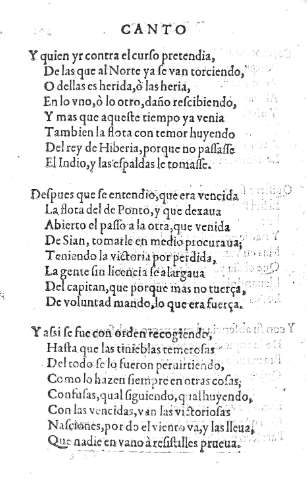 CANTO
Y quien yr contra el curso pretendia,
De las que al Norte ya se van torciendo,
O dellas es herida, ò las heria,
En lo vno, ò lo otro, daño rescibiendo,
Y mas que aqueste tiempo ya venia
Tambien la flota con temor huyendo
Del rey de Hiberia, porque no passasse
El Indio, y las espaldas le tomasse.
Despues que se entendio, que era vencida
La flota del de Ponto, y que dexaua
Abierto el passo a la otra, que venida
De Sian, tomarle en medio procuraua;
Teniendo la victoria por perdida,
La gente sin licencia se alargaua
Del capitan, que porque mas no tuerça,
De voluntad mando, lo que era fuerça.
Y assi se fue con orden recogiendo,
Hasta que las tinieblas temerosas
Del todo se lo fueron peruirtiendo,
Como lo hazen siempre en otras cosas;
Confusas, qual siguiendo, qual huyendo,
Con las vencidas, van las victoriosas
Nasciones, por do el viento va, y las lleua,
Que nadie en vano à resistilles prueua.